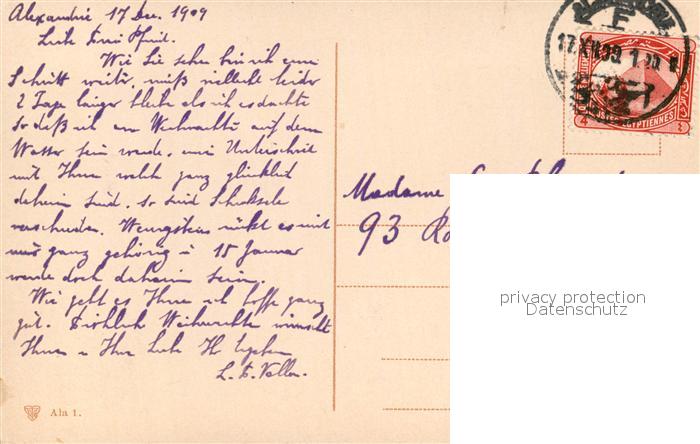 Alexandrie 17 Dec. 1909
Liebe Frau Pfmil.
Wie Sie sehen bin ich einen
Schritt weiter, muß vielleicht leider
2 Tage länger bleiben als ich es dachte
so daß ich an Weihnachten auf dem
Wasser sein werde. ein Unterschied
mit Ihnen welche ganz glücklich
daheim sind. so sind Schicksale
verschieden. Wenigstens rückt es mit
mir ganz gehörig u 15 Januar
werde doch daheim sein.
Wie geht es Ihnen ich hoffe ganz
gut. Fröhliche Weihnachten wünscht
Ihnen u Ihrer Liebe H
L. F.
Ala 1.
Madame
93
17.XII.09. 1
EGYPTIENNES
4
privacy protection
Datenschutz